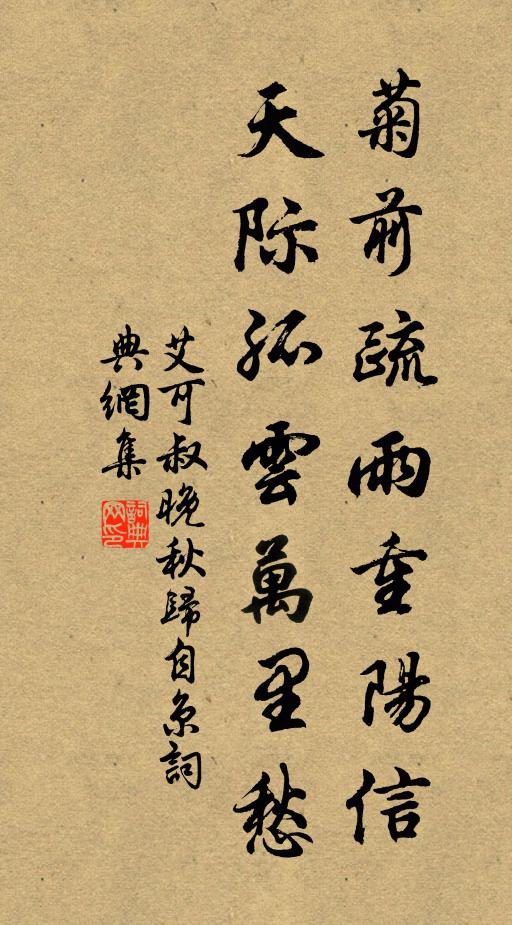 菊前疏雨重陽信
天际孤雲萬里愁
艾可叔晚秋歸自京詞
典網集
詞典網印